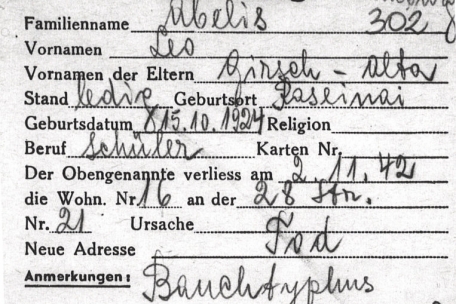 Familienname Abelis 302
Vornamen Leo
Vornamen der Eltern Girsch - Alta
Stand ledig Geburtsort Raseinai
Geburtsdatum 15.10.1924 Religion
Beruf Schüler Karten Nr.
Der Obengenannte verliess am 2.11.42
die Wohn. Nr. 16 an der 28 Str.
Nr. 21 Ursache Tod
Neue Adresse
Anmerkungen: Bauchtyphus